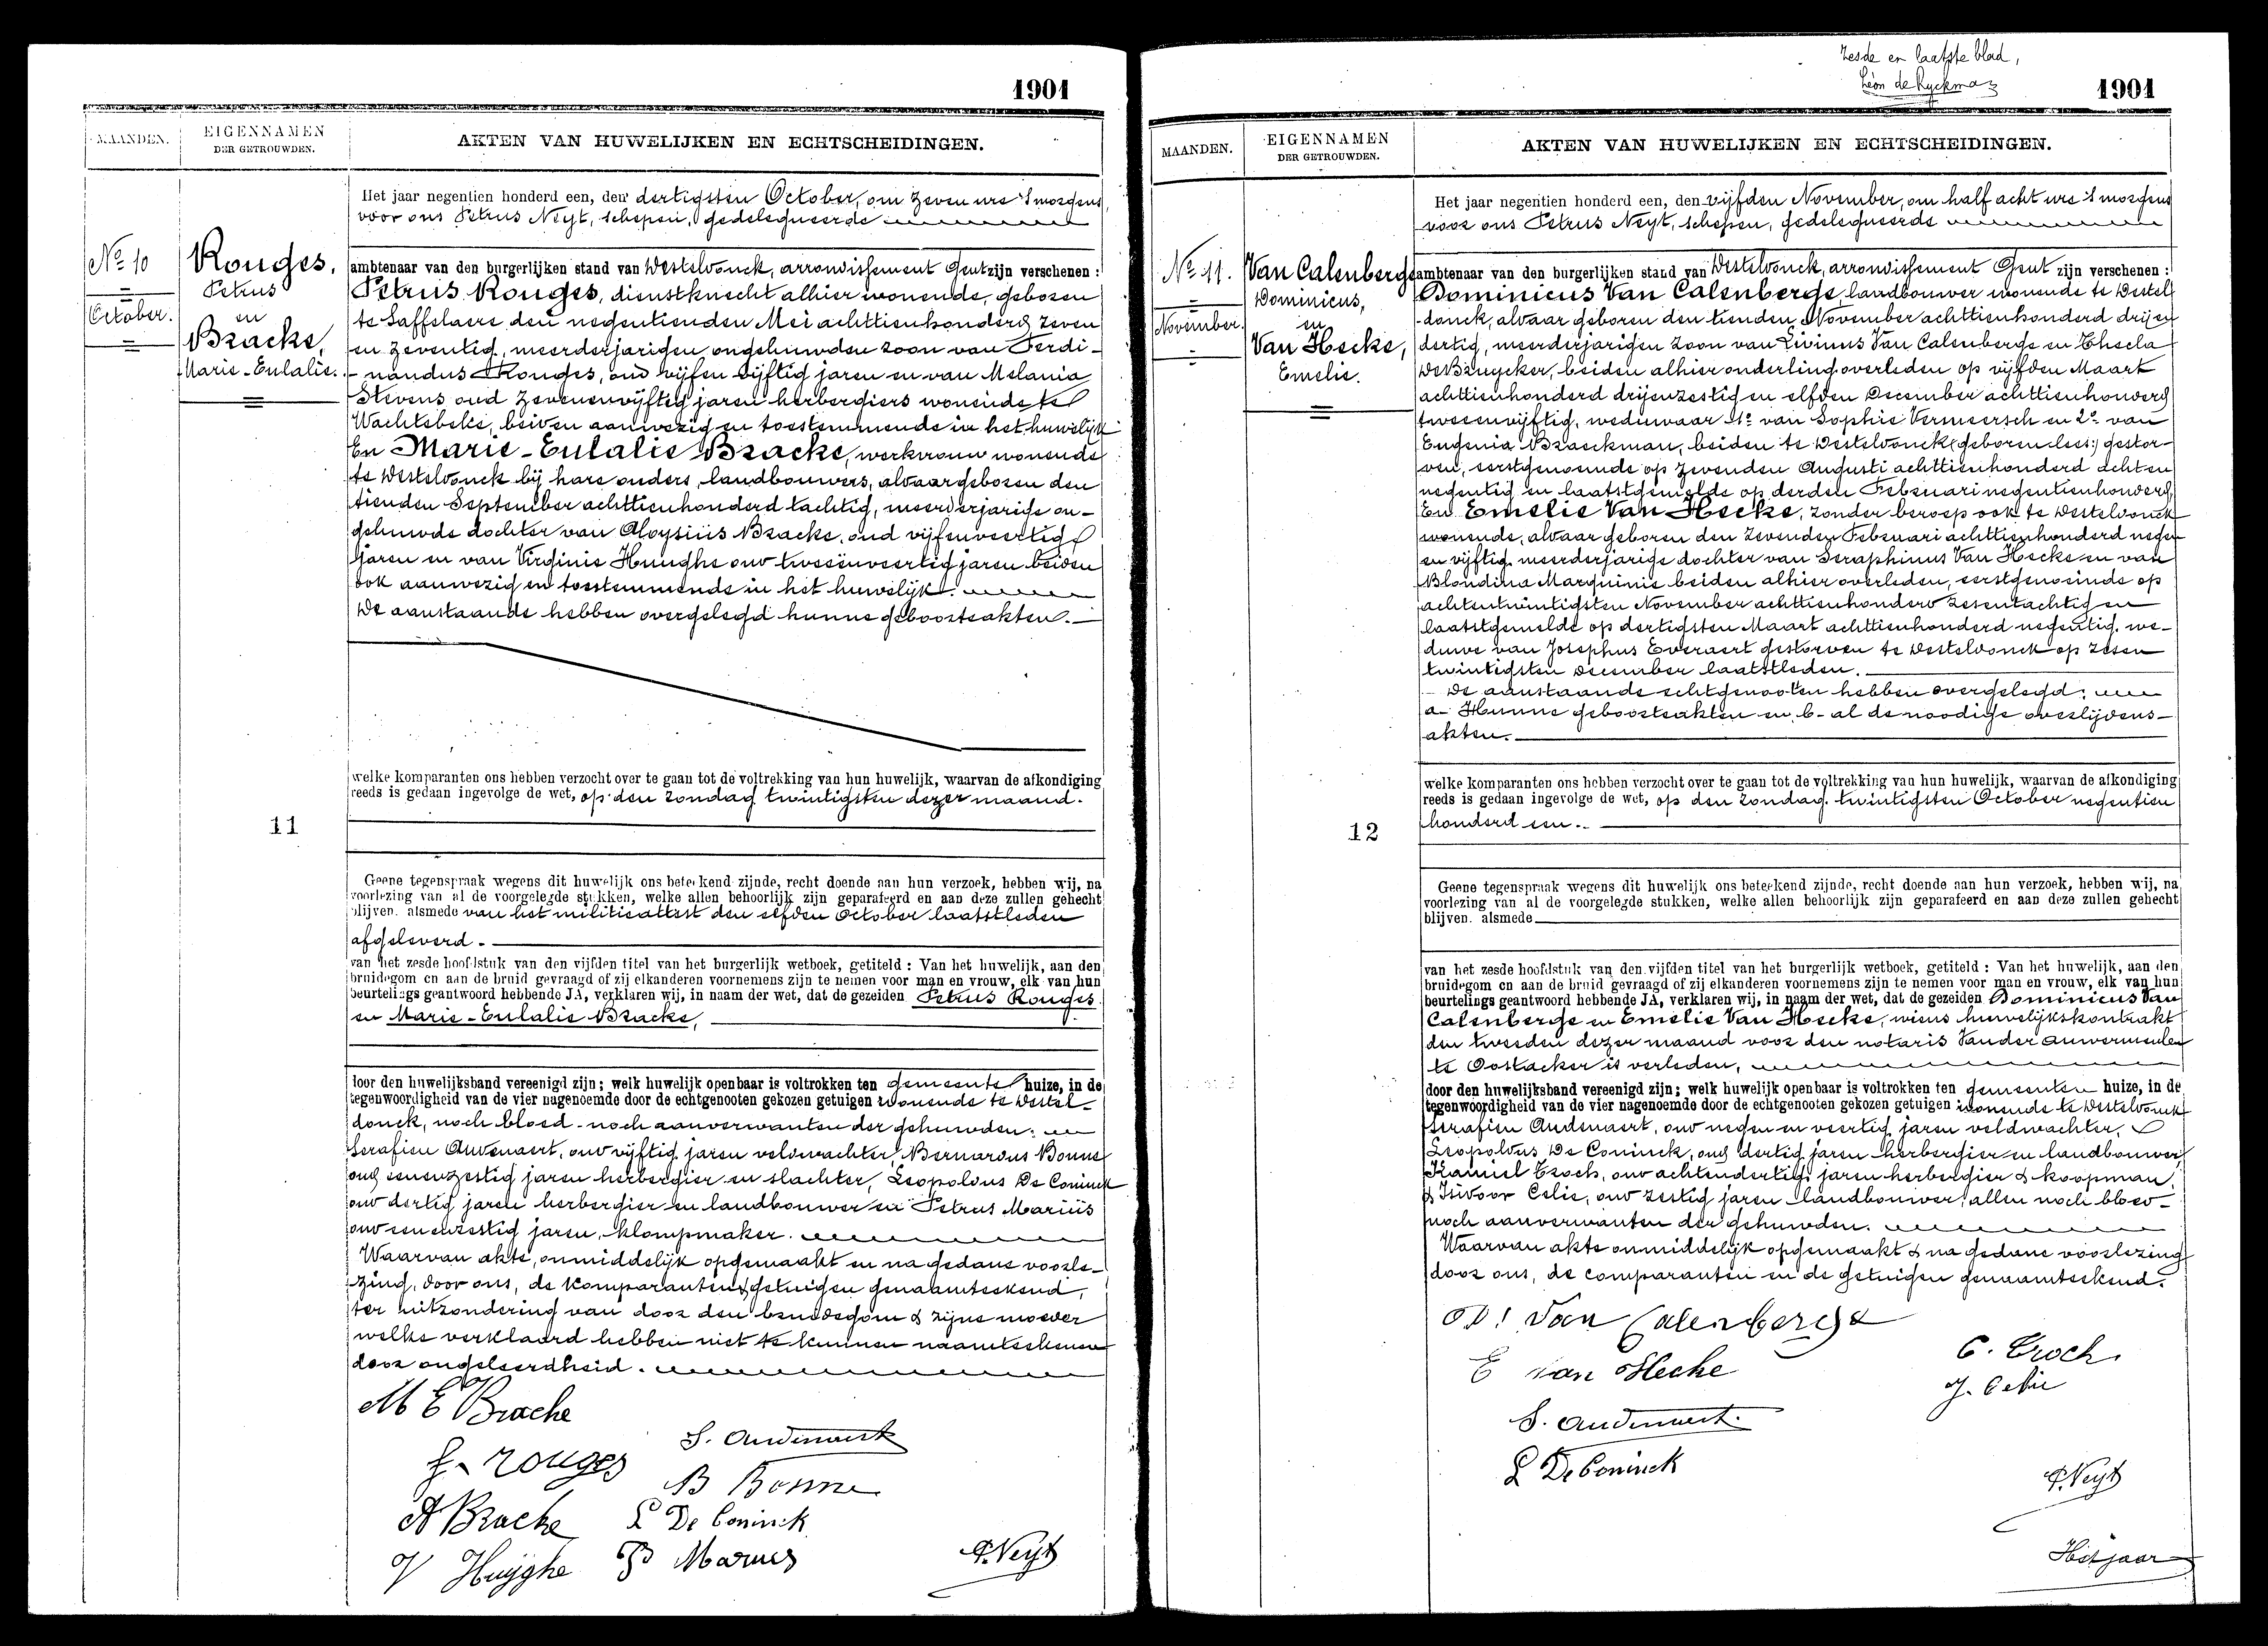 1901
MAANDEN.
EIGENNAMEN
DER GETROUWDEN.
AKTEN VAN HUWELIJKEN EN ECHTSCHEIDINGEN.
Het jaar negentien honderd een, den dertigsten October, om zeven ure 's morgens,
voor ons Petrus Neyt, schepen, gedelegueerde
No 10
October.
Rouges,
Petrus
en
Bracke,
Marie-Eulalie.
ambtenaar van den burgerlijken stand van Desteldonck, arrondissement Gent zijn verschenen :
Petrus Rouges, dienstknecht alhier wonende, geboren
te Saffelaere den negentienden Mei achttienhonderd zeven
en zeventig, meerderjarigen ongehuwden zoon van Ferdi-
nandus Rouges, oud vijfen vijftig jaren en van Melania
Stevens oud zevenenvijftig jaren herbergiers wonende te
Wachtebeke, beiden aanwezig en toestemmende in het huwelijk
En Marie-Eulalie Bracke, werkvrouw wonende
te Desteldonck bij hare ouders, landbouwers, aldaar geboren den
tienden September achttienhonderd tachtig, meerderjarige on-
gehuwde dochter van Aloysius Bracke, oud vijfenveertig
jaren en van Virginie Huughe oud tweeënveertig jaren beiden
ook aanwezig en toestemmende in het huwelijk.
De aanstaande hebben overgelegd hunne geboorteakten.
welke komparanten ons hebben verzocht over te gaan tot de voltrekking van hun huwelijk, waarvan de afkondiging
reeds is gedaan ingevolge de wet, op den Zondag twintigsten dezer maand.
11
Geene tegenspraak wegens dit huwelijk ons beteekend zijnde, recht doende aan hun verzoek, hebben wij, na
voorlezing van al de voorgelegde stukken, welke allen behoorlijk zijn geparafeerd en aan deze zullen gehecht
blijven. alsmede van het militieattest den elfden October laatstleden
afgeleverd.
van het zesde hoofdstuk van den vijfden titel van het burgerlijk wetboek, getiteld : Van het huwelijk, aan den
bruidegom en aan de bruid gevraagd of zij elkanderen voornemens zijn te nemen voor man en vrouw, elk van hun
beurtelings geantwoord hebbende JA, verklaren wij, in naam der wet, dat de gezeiden Petrus Rouges
en Marie-Eulalie Bracke,
door den huwelijksband vereenigd zijn; welk huwelijk openbaar is voltrokken ten gemeente huize, in de
tegenwoordigheid van de vier nagenoemde door de echtgenooten gekozen getuigen wonende te Destel-
donck, noch bloed- noch aanverwanten der gehuwden:
Serafien Audenaert, oud vijftig jaren veldwachter, Bernardus Bonne
oud eenenzestig jaren herbergier en slachter, Leopoldus De Coninck
oud dertig jaren herbergier en landbouwer en Petrus Mariüs
oud eenenzestig jaren, klompmaker.
Waarvan akte, onmiddelijk opgemaakt en na gedane voorle-
zing, door ons, de komparanten & getuigen genaamteekend,
ter uitzondering van door den bruidegom & zijne moeder
welke verklaard hebben niet te kunnen naamteekenen
door ongeleerdheid.
M E Bracke
f. rouges
S. Audenaert
B Bonne
A Bracke
L De Coninck
V Huyghe
P Marius
P. Neyt
Zesde en laatste blad,
Léon de Ryckman
1901
MAANDEN.
EIGENNAMEN
DER GETROUWDEN.
AKTEN VAN HUWELIJKEN EN ECHTSCHEIDINGEN.
Het jaar negentien honderd een, den vijfden November, om half acht ure 's morgens
voor ons Petrus Neyt, schepen, gedelegueerde
No 11.
November.
Van Calenberge
Dominicus,
en
Van Hecke,
Emelie.
ambtenaar van den burgerlijken stand van Desteldonck, arrondissement Gent zijn verschenen :
Dominicus Van Calenberge, landbouwer wonende te Destel
donck, aldaar geboren den tienden November achttienhonderd drijen
dertig, meerderjarigen zoon van Livinus Van Calenberge en Thecla
De Bruycker, beiden alhier onderling overleden op vijfden Maart
achttienhonderd drijenzestig en elfden December achttienhonderd
tweeenvijftig, weduwaar 1o van Sophie Vermeersch en 2o van
Eugenia Braeckman, beiden te Desteldonck (geboren lees:) gestor-
ven, eerstgenoemde op zevenden Augusti achttienhonderd achten
negentig en laatstgemelde op derden Februari negentienhonderd,
En Emelie Van Hecke, zonder beroep ook te Desteldonck
wonende, aldaar geboren den zevenden Februari achttienhonderd negen
en vijftig meerderjarige dochter van Seraphinus Van Hecke en van
Blondina Marquinie beiden alhier overleden, eerstgenoemde op
achtentwintigsten November achttienhonderd zesentachtig en
laatstgemelde op dertigsten Maart achttienhonderd negentig, we-
duwe van Josephus Everaert gestorven te Desteldonck op zesen
twintigsten December laatstleden.
De aanstaande echtgenooten hebben overgelegd:
a- Hunne geboorteakten en b- al de noodige overlijdens-
akten.
welke komparanten ons hebben verzocht over te gaan tot de voltrekking van hun huwelijk, waarvan de afkondiging
reeds is gedaan ingevolge de wet, op den Zondag twintigsten October negentien
honderd een.
12
Geene tegenspraak wegens dit huwelijk ons beteekend zijnde, recht doende aan hun verzoek, hebben wij, na
voorlezing van al de voorgelegde stukken, welke allen behoorlijk zijn geparafeerd en aan deze zullen gehecht
blijven. alsmede
van het zesde hoofdstuk van den vijfden titel van het burgerlijk wetboek, getiteld : Van het huwelijk, aan den
bruidegom en aan de bruid gevraagd of zij elkanderen voornemens zijn te nemen voor man en vrouw, elk van hun
beurtelings geantwoord hebbende JA, verklaren wij, in naam der wet, dat de gezeiden Dominicus Van
Calenberge en Emelie Van Hecke, wiens huwelijkskontrakt
den tweeden dezer maand voor den notaris Vander Auwermeulen
te Oostacker is verleden,
door den huwelijksband vereenigd zijn; welk huwelijk openbaar is voltrokken ten gemeenten huize, in de
tegenwoordigheid van de vier nagenoemde door de echtgenooten gekozen getuigen wonende te Desteldonck
Serafien Audenaert, oud negen en veertig jaren veldwachter,
Leopoldus De Coninck, oud dertig jaren herbergier en landbouwer,
Kamiel Croch, oud achtendertig jaren herbergier & koopman,
& Isidoor Celie, oud zestig jaren landbouwer, allen noch bloed-
noch aanverwanten der gehuwden.
Waarvan akte onmiddelijk opgemaakt & na gedane voorlezing
door ons, de comparanten en de getuigen genaamteekend.
D! Van Calenberge
E van Hecke
C. Croch.
J. Celie
S. Audenaert.
L De Coninck
P. Neyt
Het jaar